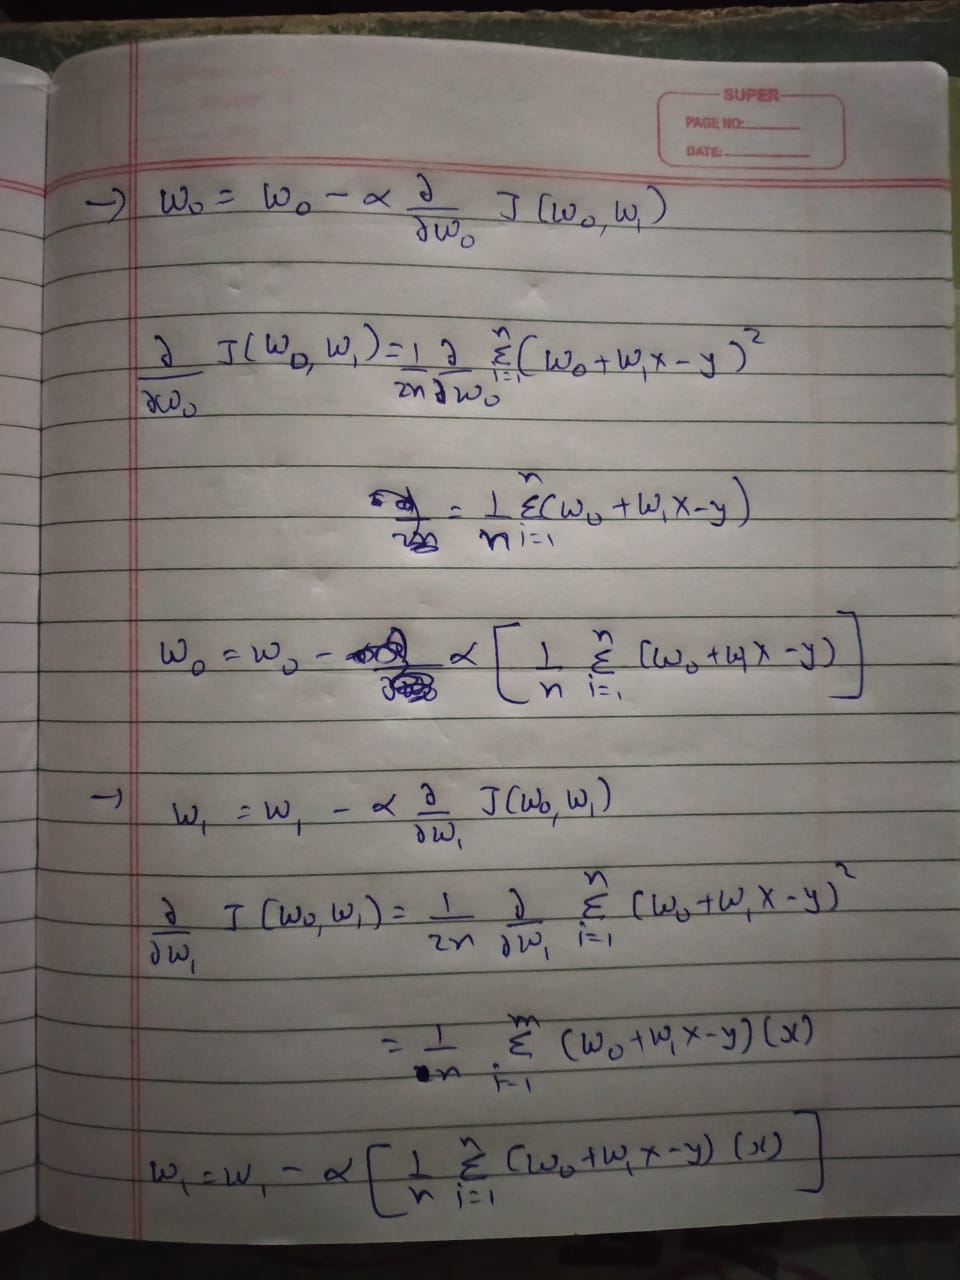 SUPER
PAGE NO:
DATE:
→ w₀ = w₀ - α ∂/∂w₀ J(w₀, w₁)
∂/∂w₀ J(w₀, w₁) = 1/2n ∂/∂w₀ Σᵢ₌₁ⁿ (w₀ + w₁x - y)²
= 1/n Σᵢ₌₁ⁿ (w₀ + w₁x - y)
w₀ = w₀ - α [1/n Σᵢ₌₁ⁿ (w₀ + w₁x - y)]
→ w₁ = w₁ - α ∂/∂w₁ J(w₀, w₁)
∂/∂w₁ J(w₀, w₁) = 1/2n ∂/∂w₁ Σᵢ₌₁ⁿ (w₀ + w₁x - y)²
= 1/n Σᵢ₌₁ⁿ (w₀ + w₁x - y)(x)
w₁ = w₁ - α [1/n Σᵢ₌₁ⁿ (w₀ + w₁x - y)(x)]